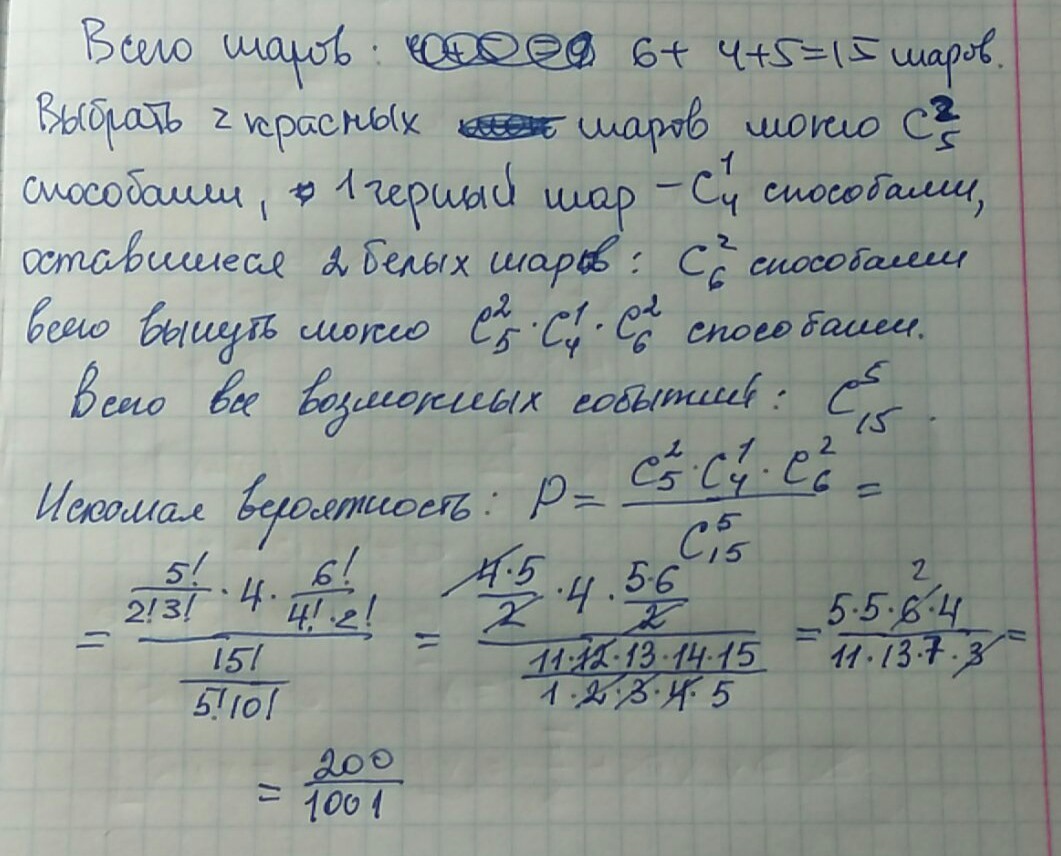 Всего шаров: 6+ 4+5=15 шаров.
Выбрать 2 красных шаров можно C₅²
способами, 1 черный шар – C₄¹ способами,
оставшиеся 2 белых шаров: C₆² способами
всего вынуть можно C₅² · C₄¹ · C₆² способами.
Всего все возможных событий: C₁₅⁵.
Искомая вероятность: P = (C₅² · C₄¹ · C₆²) / C₁₅⁵ =
= (5!/(2!3!) · 4 · 6!/(4!·2!)) / (15!/(5!10!)) = (4·5/2 · 4 · 5·6/2) / (11·12·13·14·15/(1·2·3·4·5)) = 5·5·6·4 2/(11·13·7·3) =
= 200/1001